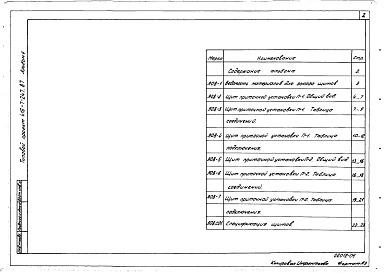 2
Типовой проект 416-7-247.87 Альбом
Марка Наименование Стр.
Содержание альбома 2
АОВ-1 Ведомость материалов для заказа щитов 3
АОВ-2 Щит приточной установки П-1. Общий вид 4-7
АОВ-3 Щит приточной установки П-1. Таблица 7-9
соединений.
АОВ-4 Щит приточной установки П-1. Таблица 10-12
подключения.
АОВ-5 Щит приточной установки П-2. Общий вид 13-16
АОВ-6 Щит приточной установки П-2. Таблица 16-18
соединений.
АОВ-7 Щит приточной установки П-2. Таблица 19-21
подключения.
Спецификация щитов 22-23
Копировал Формат А3